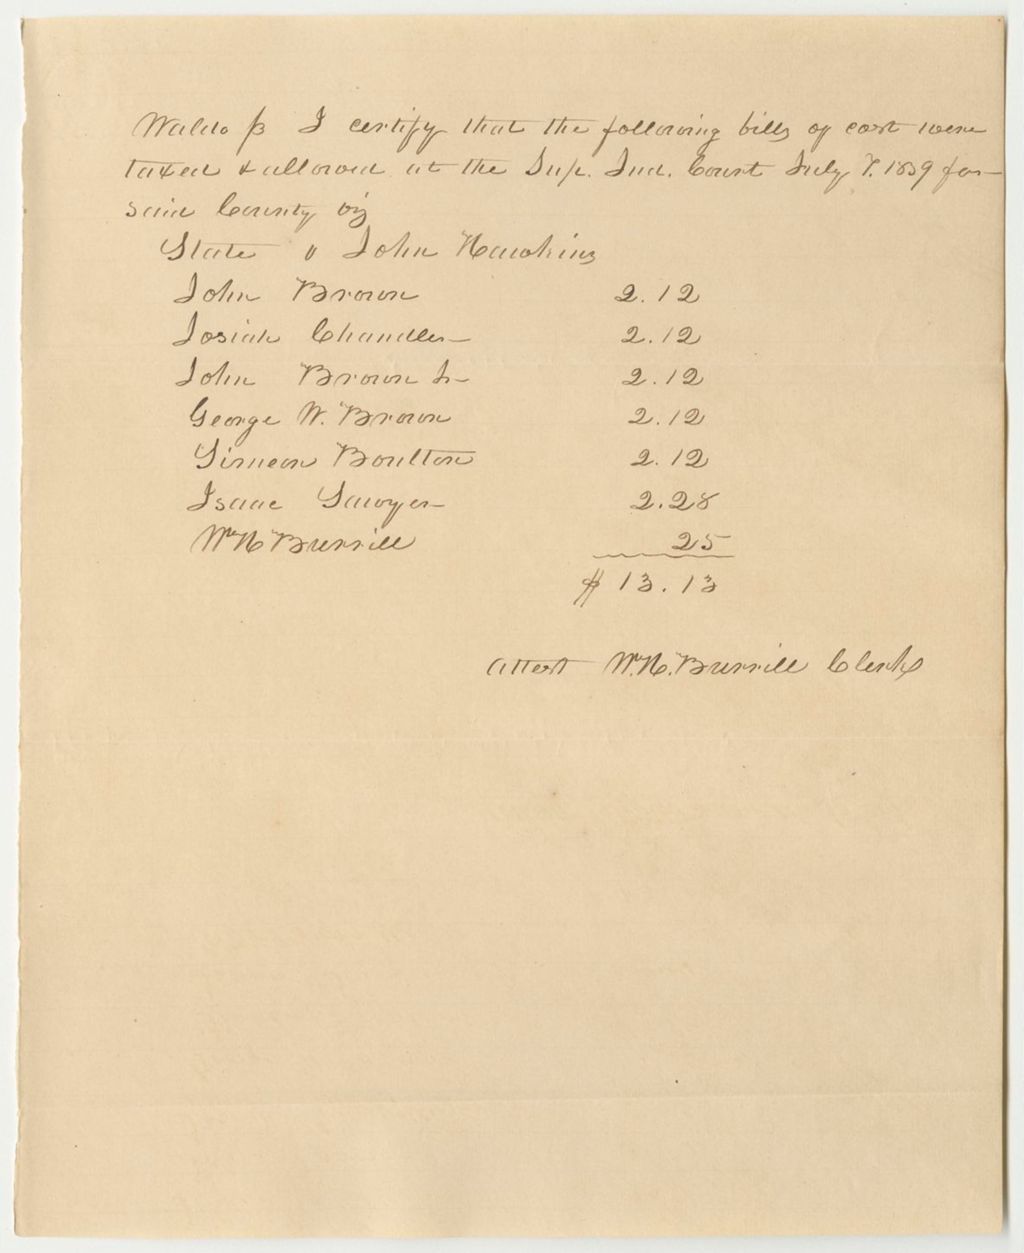 Waldo ss I certify that the following bills of cost were
taxed & allowed at the Sup. Jud. Court July T. 1839 for
said County viz
State v John Hawkins
John Brown 2.12
Josiah Chandler 2.12
John Brown Jr 2.12
George W. Brown 2.12
Simeon Boulton 2.12
Isaac Sawyer 2.28
Wm H Burrill 25
$ 13.13
attest Wm H. Burrill Clerk